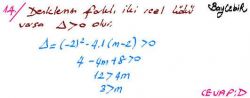 14/ Denklemin farklı iki reel kökü BayCebir
varsa Δ>0 olur.
Δ=(-2)²-4.1(m-2)>0
4-4m+8>0
12>4m
3>m
CEVAP:D